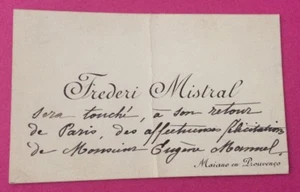 Frederi Mistral
sera touché, à son retour
de Paris, des affectueuses félicitations
de Monsieur Eugène
Maiano en Prouvenço